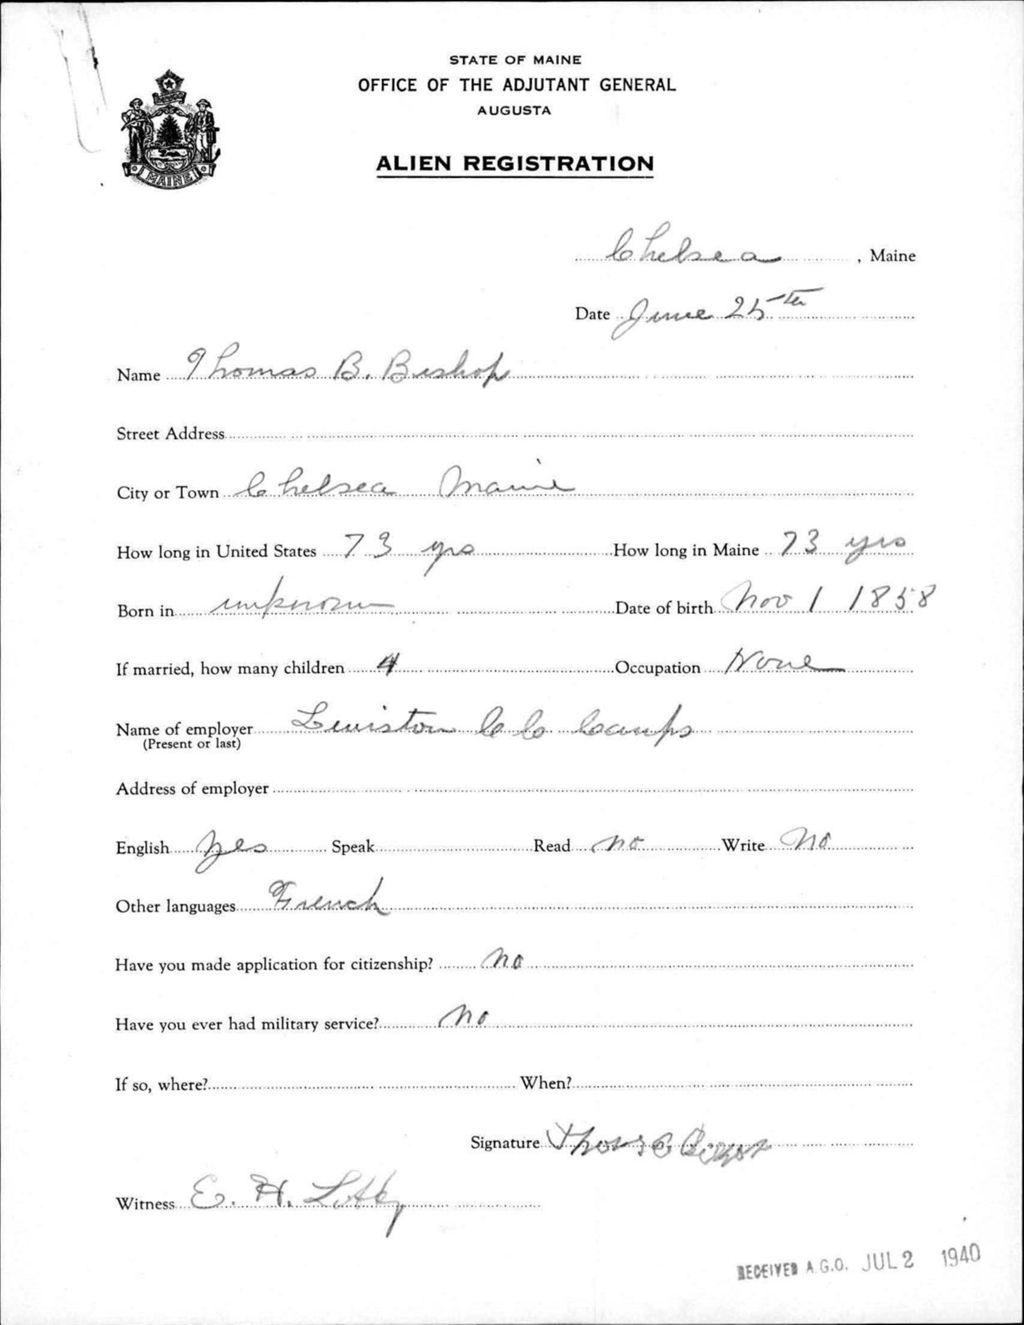 STATE OF MAINE
OFFICE OF THE ADJUTANT GENERAL
AUGUSTA
ALIEN REGISTRATION
MAINE
Chelsea, Maine
Date June 25th
Name Thomas B. Bishop
Street Address
City or Town Chelsea Maine
How long in United States 73 yrs How long in Maine 73 yrs
Born in unknown Date of birth Nov 1 1858
If married, how many children 4 Occupation None
Name of employer Lewiston C C Camps
(Present or last)
Address of employer
English Yes Speak Read no Write No
Other languages French
Have you made application for citizenship? No
Have you ever had military service? No
If so, where? When?
Signature
Witness E. H.
RECEIVED A.G.O. JUL 2 1940